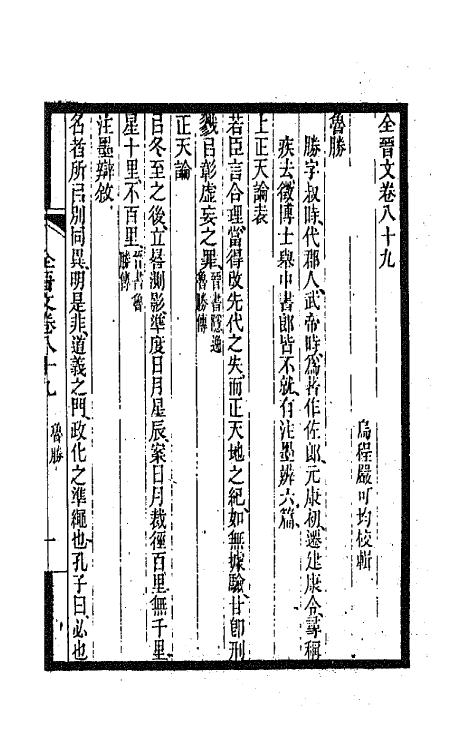 全晉文卷八十九
烏程嚴可均校輯
魯勝
勝字叔時代郡人武帝時爲著作佐郎元康初遷建康令尋稱
疾去徵博士舉中書郎皆不就有注墨辨六篇
上正天論表
若臣言合理當得改先代之失而正天地之紀如無據驗甘卽刑
戮㠯彰虛妄之罪晉書隱逸魯勝傳
正天論
㠯冬至之後立晷測影準度日月星辰案日月裁徑百里無千里
星十里不百里晉書魯勝傳
注墨辯敘
名者所㠯別同異明是非道義之門政化之準繩也孔子曰必也
全晉文卷八十九 魯勝 一